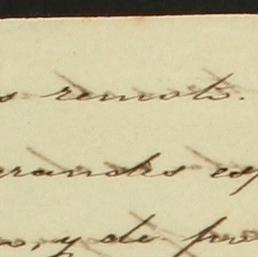 s remoto.
grandes esp
o, y de pro